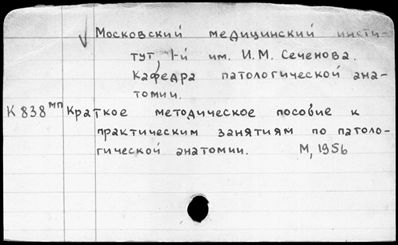 Московский медицинский инсти-
тут, 1-й им. И.М. Сеченова.
Кафедра патологической ана-
томии.
К 838 мп Краткое методическое пособие к
практическим занятиям по патоло-
гической анатомии. М, 1956